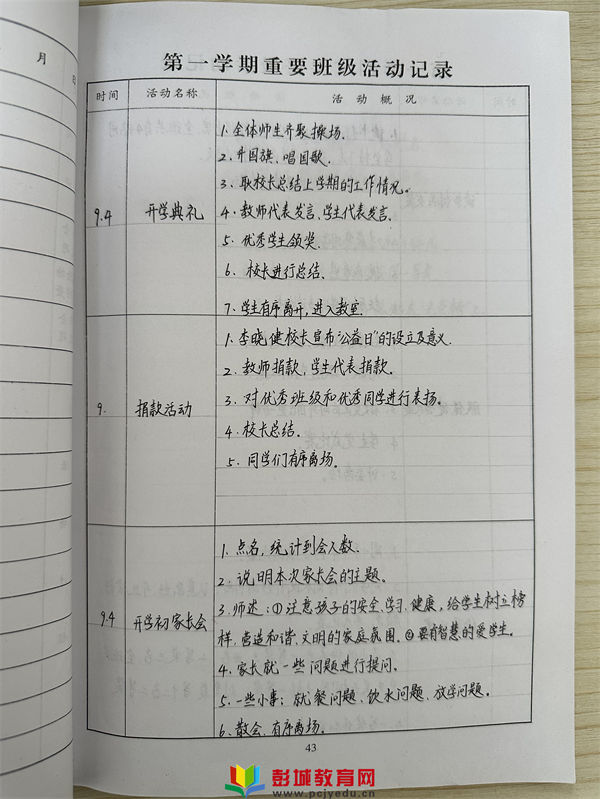 月
日
第一学期重要班级活动记录
时间 活动名称 活动概况
9.4 开学典礼
1.全体师生齐聚操场.
2.升国旗、唱国歌.
3.耿校长总结上学期的工作情况。
4.教师代表发言、学生代表发言.
5.优秀学生颁奖.
6.校长进行总结.
7.学生有序离开,进入教室.
9. 捐款活动
1.李晓健校长宣布“公益日”的设立及意义.
2.教师捐款,学生代表捐款.
3.对优秀班级和优秀同学进行表扬.
4.校长总结.
5.同学们有序离场.
9.4 开学初家长会
1.点名,统计到会人数.
2.说明本次家长会的主题.
3.师述:①注意孩子的安全、学习、健康,给学生树立榜
样,营造和谐、文明的家庭氛围.②要有智慧的爱学生。
4.家长就一些问题进行提问.
5.一些小事:就餐问题、饮水问题、放学问题.
6.散会、有序离场.
43
彭城教育网
www.pcjyedu.cn